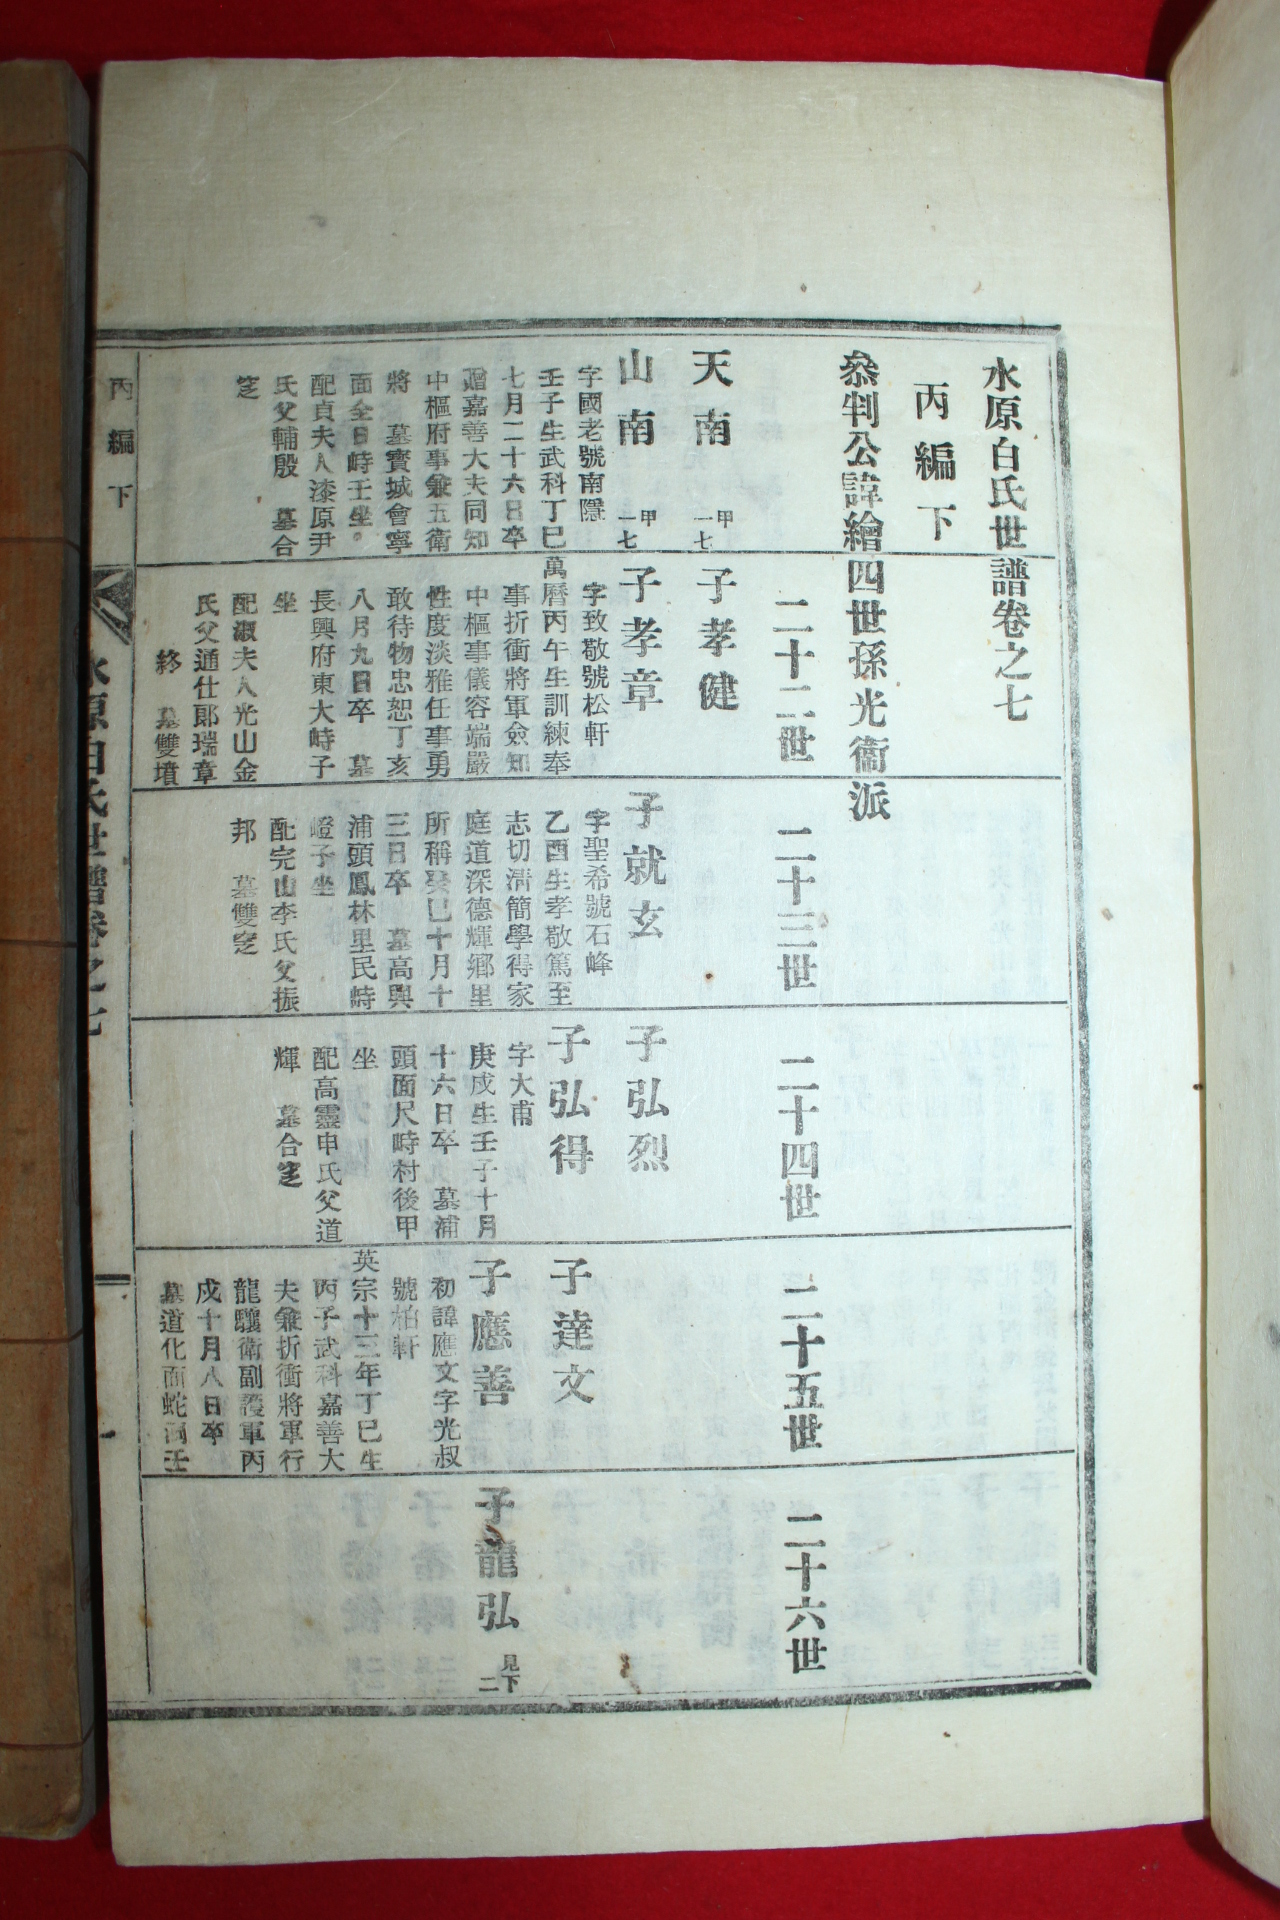 水原白氏世譜卷之七
丙編下
叅判公諱繪四世孫光衞派
二十二世
二十三世
二十四世
二十五世
二十六世
天南 甲一七
山南 甲一七
字國老號南隱
壬子生武科丁巳
七月二十六日卒
贈嘉善大夫同知
中樞府事兼五衛
將 墓寶城會寧
面全日峙壬坐。
配貞夫人漆原尹
氏父輔殷 墓合
窆
子孝健
子孝章
字致敬號松軒
萬曆丙午生訓練奉
事折衝將軍僉知
中樞事儀容端嚴
性度淡雅任事勇
敢待物忠恕丁亥
八月九日卒 墓
長興府東大峙子
坐
配淑夫人光山金
氏父通仕郞瑞章
終 墓雙墳
子就玄
字聖希號石峰
乙酉生孝敬篤至
志切淸簡學得家
庭道深德輝鄕里
所稱癸巳十月十
三日卒 墓高興
浦頭鳳林里民峙
嶝子坐
配完山李氏父振
邦 墓雙窆
子弘烈
子弘得
字大甫
庚戌生壬子十月
十六日卒 墓浦
頭面尺峙村後甲
坐
配高靈申氏父道
輝 墓合窆
子達文
子應善
初諱應文字光叔
號柏軒
英宗十三年丁巳生
丙子武科嘉善大
夫兼折衝將軍行
龍驤衛副護軍丙
戌十月八日卒
墓道化面蛇洞壬
子龍弘 見下二
丙編下
水原白氏世譜卷之七
一